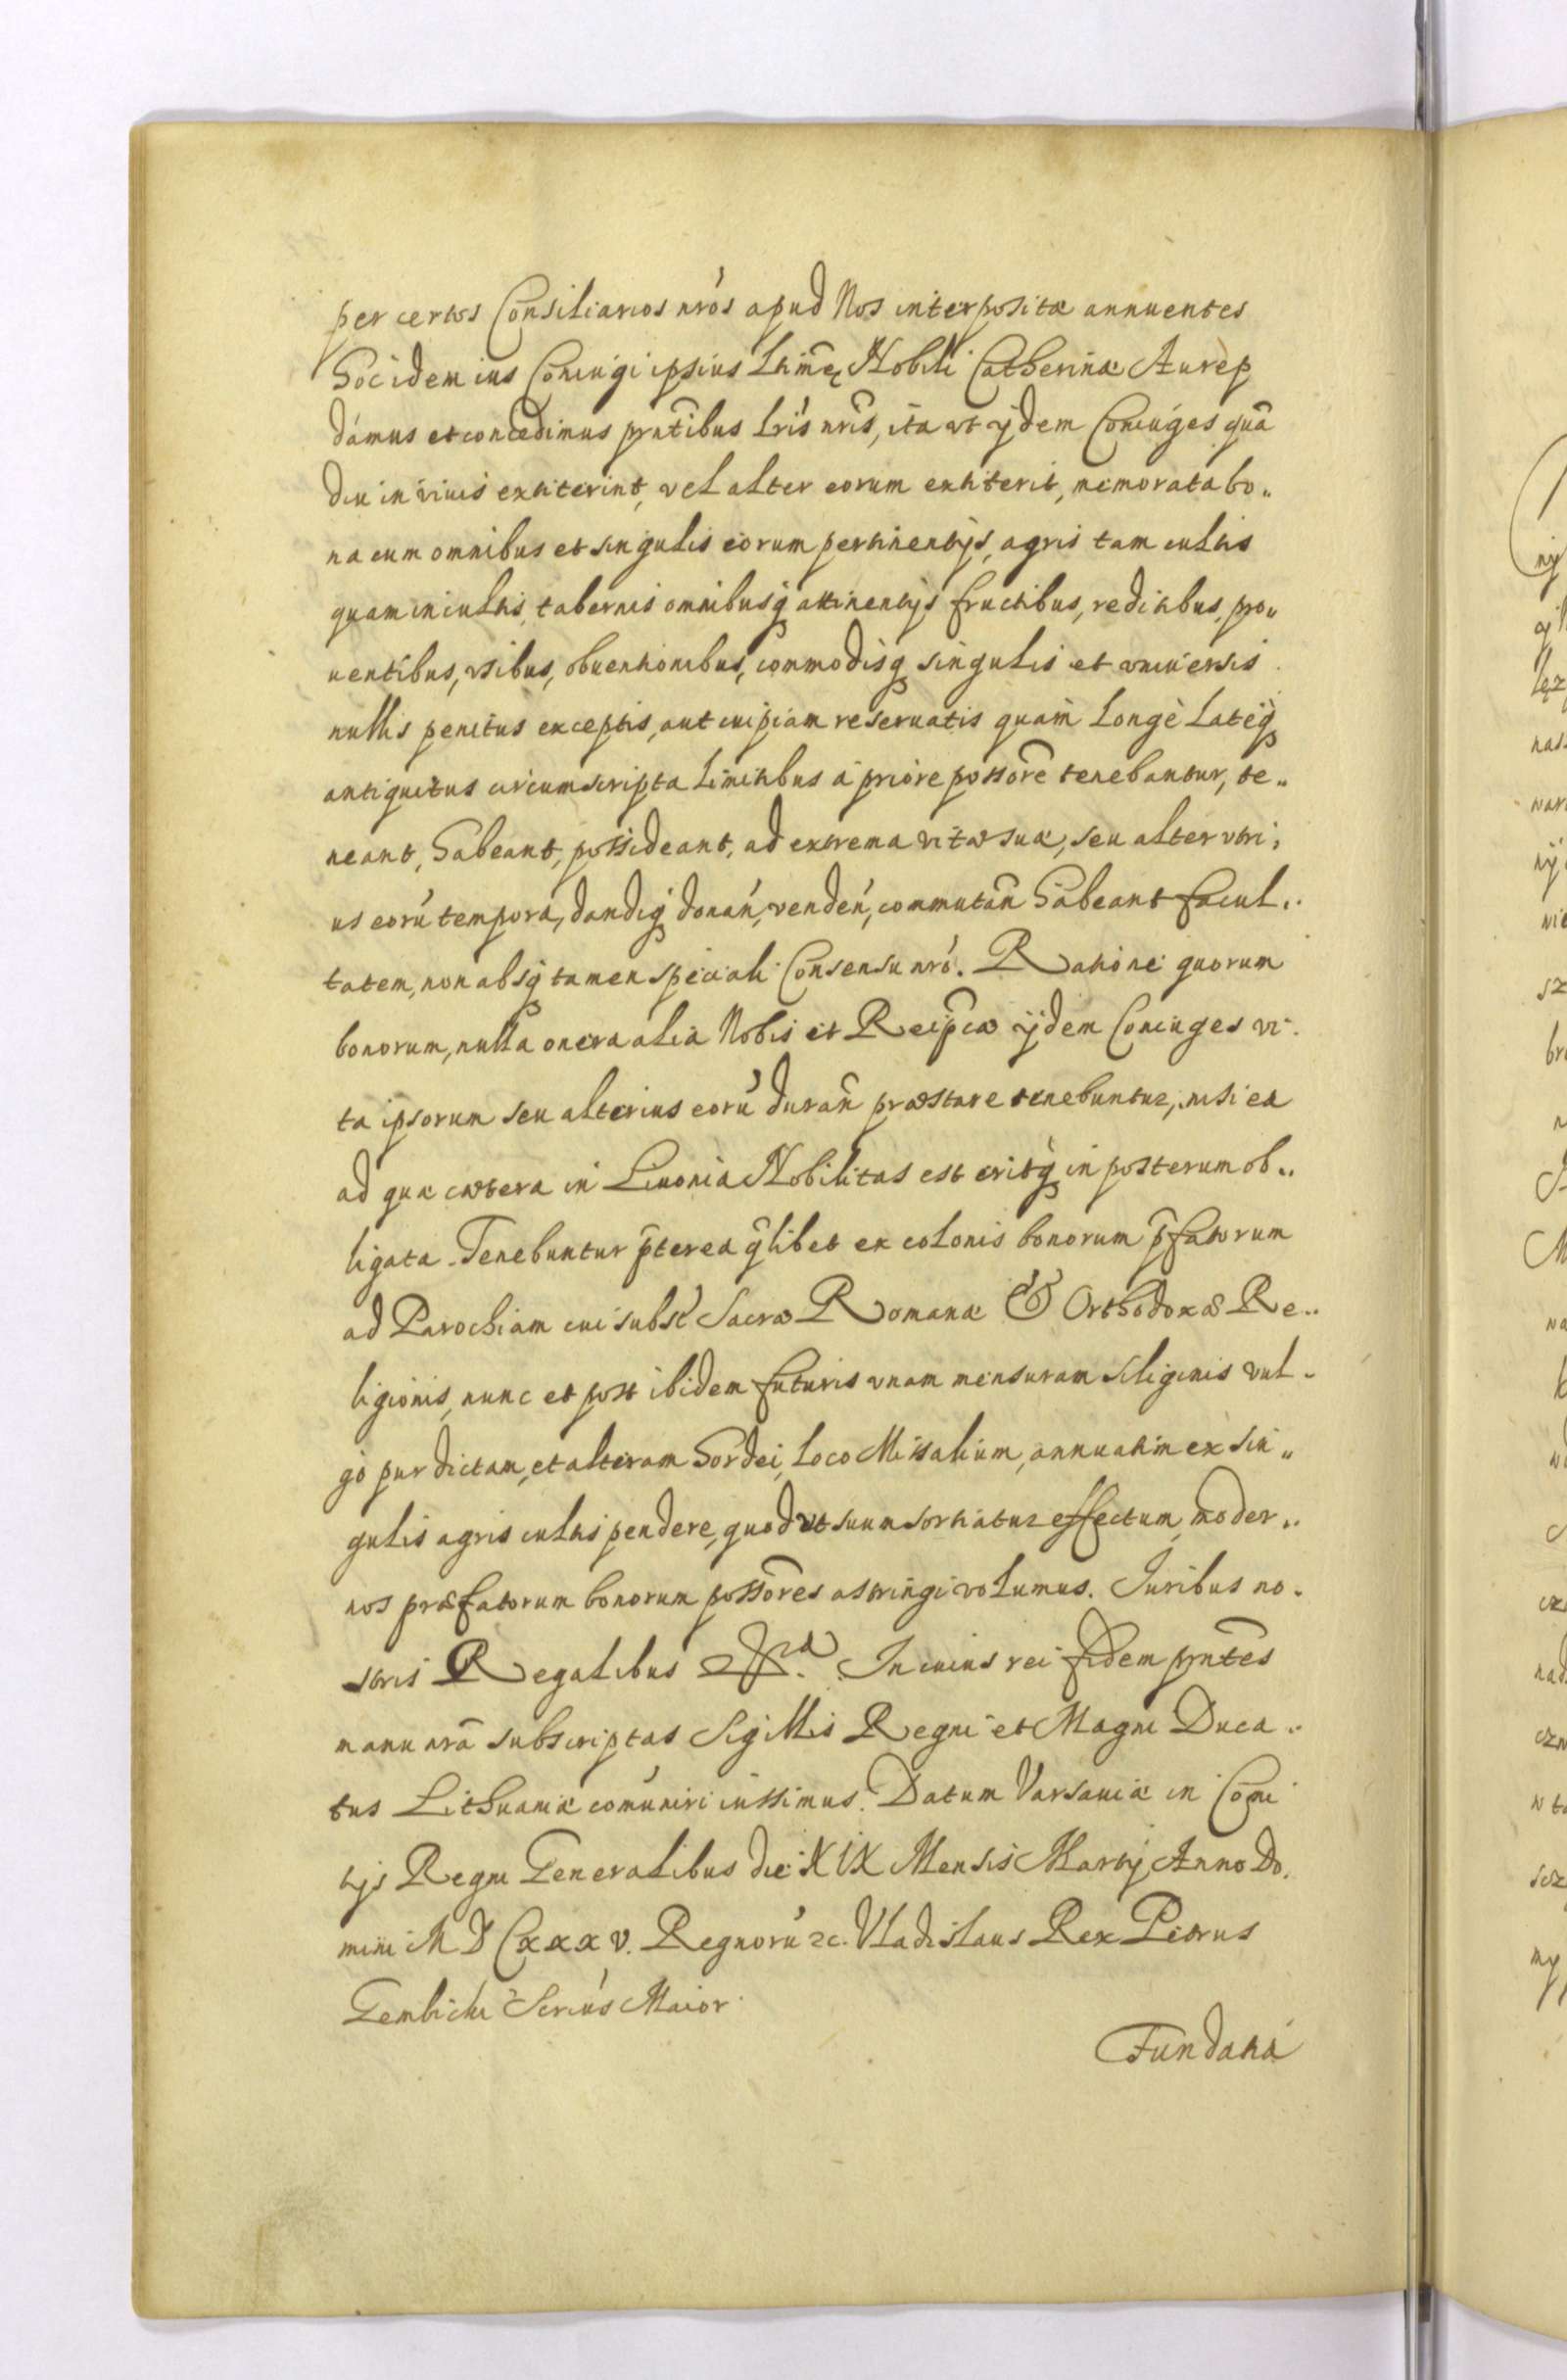 per certos Consiliarios nr̃os apud Nos interpositæ annuentes
hoc idem ius Coniugi ipsius Lhimę Nobili Catherinæ Aurep
damus et concedimus pr̃ntibus Lr̃is nr̃is, ita vt ijdem Coniuges quã
diu in viuis extiterint, vel alter eorum extiterit, memorata bo„
na cum omnibus et singulis eorum pertinentijs, agris tam cultis
quam incultis, tabernis omnibusq́ attinentijs fructibus, reditibus, pro„
uentibus, vsibus, obuentionibus, commodisq́ singulis et vniuersis
nullis penitus exceptis, aut cuipiam reseruatis quam Longè Lateq́
antiquitus circumscripta Limitibus á priore possorẽ tenebantur, te„
neant, habeant, possideant, ad extrema vitæ suæ, seu alter vtri,
us eorú tempora, dandiq́ donań, vendeń, commutañ habeant facul„
tatem, non absq́ tamen speciali Consensu nró. Ratione quorum
bonorum, nulla onera alia Nobis et Reip̃cæ ijdem Coniuges vi-
ta ipsorum seu alterius eorú durañ præstare tenebuntur, nisi ea
ad quæ cætera in Liuonia Nobilitas est eritq́ in posterum ob„
ligata. Tenebuntur p̃terea q̃libet ex colonis bonorum p̃fatorum
ad Parochiam cui subsť Sacræ Romanæ & Orthodoxæ Re„
ligionis, nunc et post ibidem futuris vnam mensuram siliginis vul-
go pur dictam, et alteram hordei, Loco Missalium, annuatim ex sin„
gulis agris cultis pendere, quod vt suum sortiatur effectum, moder„
nos præfatorum bonorum possõres astringi volumus. Iuribus no-
stris Regalibus &ra. In cuius rei fidem pr̃ntes
manu nrã subscriptas Sigillis Regni et Magni Duca„
tus Lithuaniæ comúniri iussimus. Datum Varsauiæ in Com̃i
tijs Regni Generalibus die XIX Mensis Martij Anno Do.
mini M D Cxxx v. Regnorú &c. Vladislaus Rex Petrus
Gembicki Secrius Maior
Fundatiá